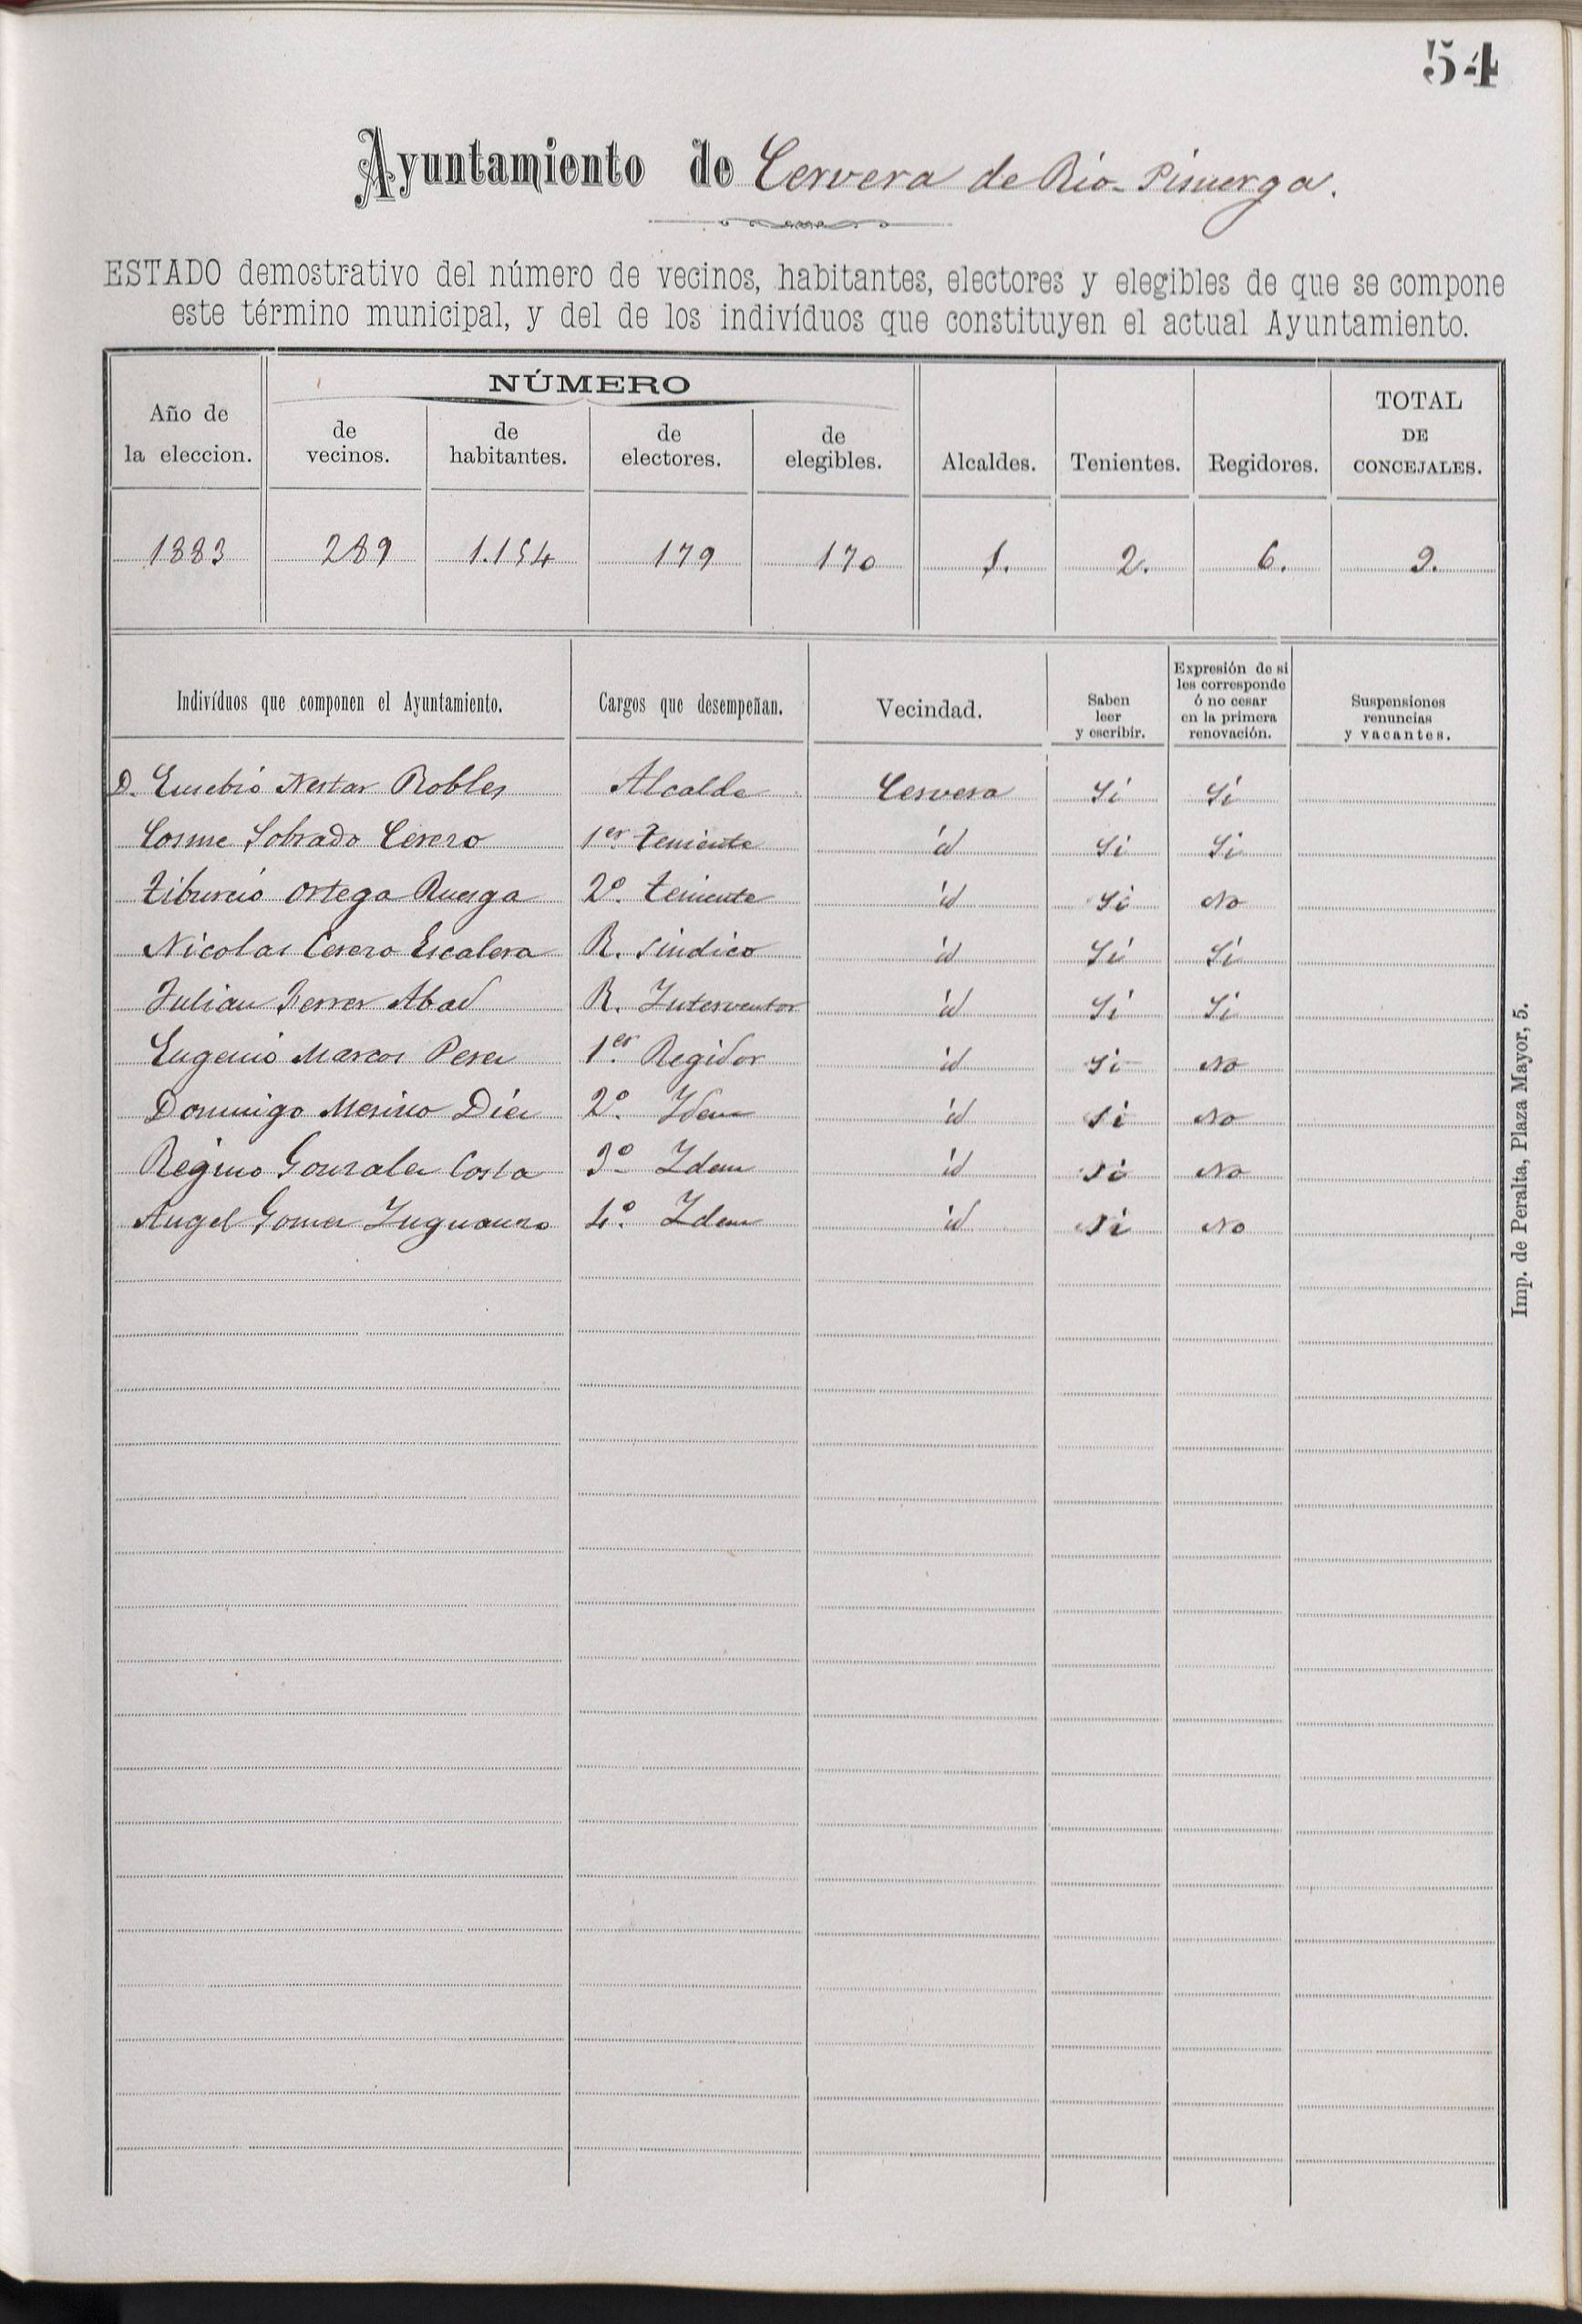 54
Ayuntamiento de Cervera de Rio-Pisuerga.
ESTADO demostrativo del número de vecinos, habitantes, electores y elegibles de que se compone
este término municipal, y del de los indivíduos que constituyen el actual Ayuntamiento.
Año de la eleccion. NÚMERO de vecinos. de habitantes. de electores. de elegibles. Alcaldes. Tenientes. Regidores. TOTAL DE CONCEJALES.
1883 289 1.154 179 170 1. 2. 6. 9.
Indivíduos que componen el Ayuntamiento. Cargos que desempeñan. Vecindad. Saben leer y escribir. Expresión de si les corresponde ó no cesar en la primera renovación. Suspensiones renuncias y vacantes.
D. Eusebio Nestar Robles Alcalde Cervera Si Si
Cosme Sobrado Cerezo 1er Teniente id Si Si
Tiburcio Ortega Ruesga 2º. teniente id Si No
Nicolas Cerezo Escalera R. Sindico id Si Si
Julian Ferrer Abad R. Interventor id Si Si
Eugenio Marcos Perez 1er. Regidor id Si No
Domingo Merino Diez 2º. Idem id Si No
Regino Gonzalez Costa 3º Idem id Si No
Angel Gomez Inguanzo 4º. Idem id Si No
Imp. de Peralta, Plaza Mayor, 5.